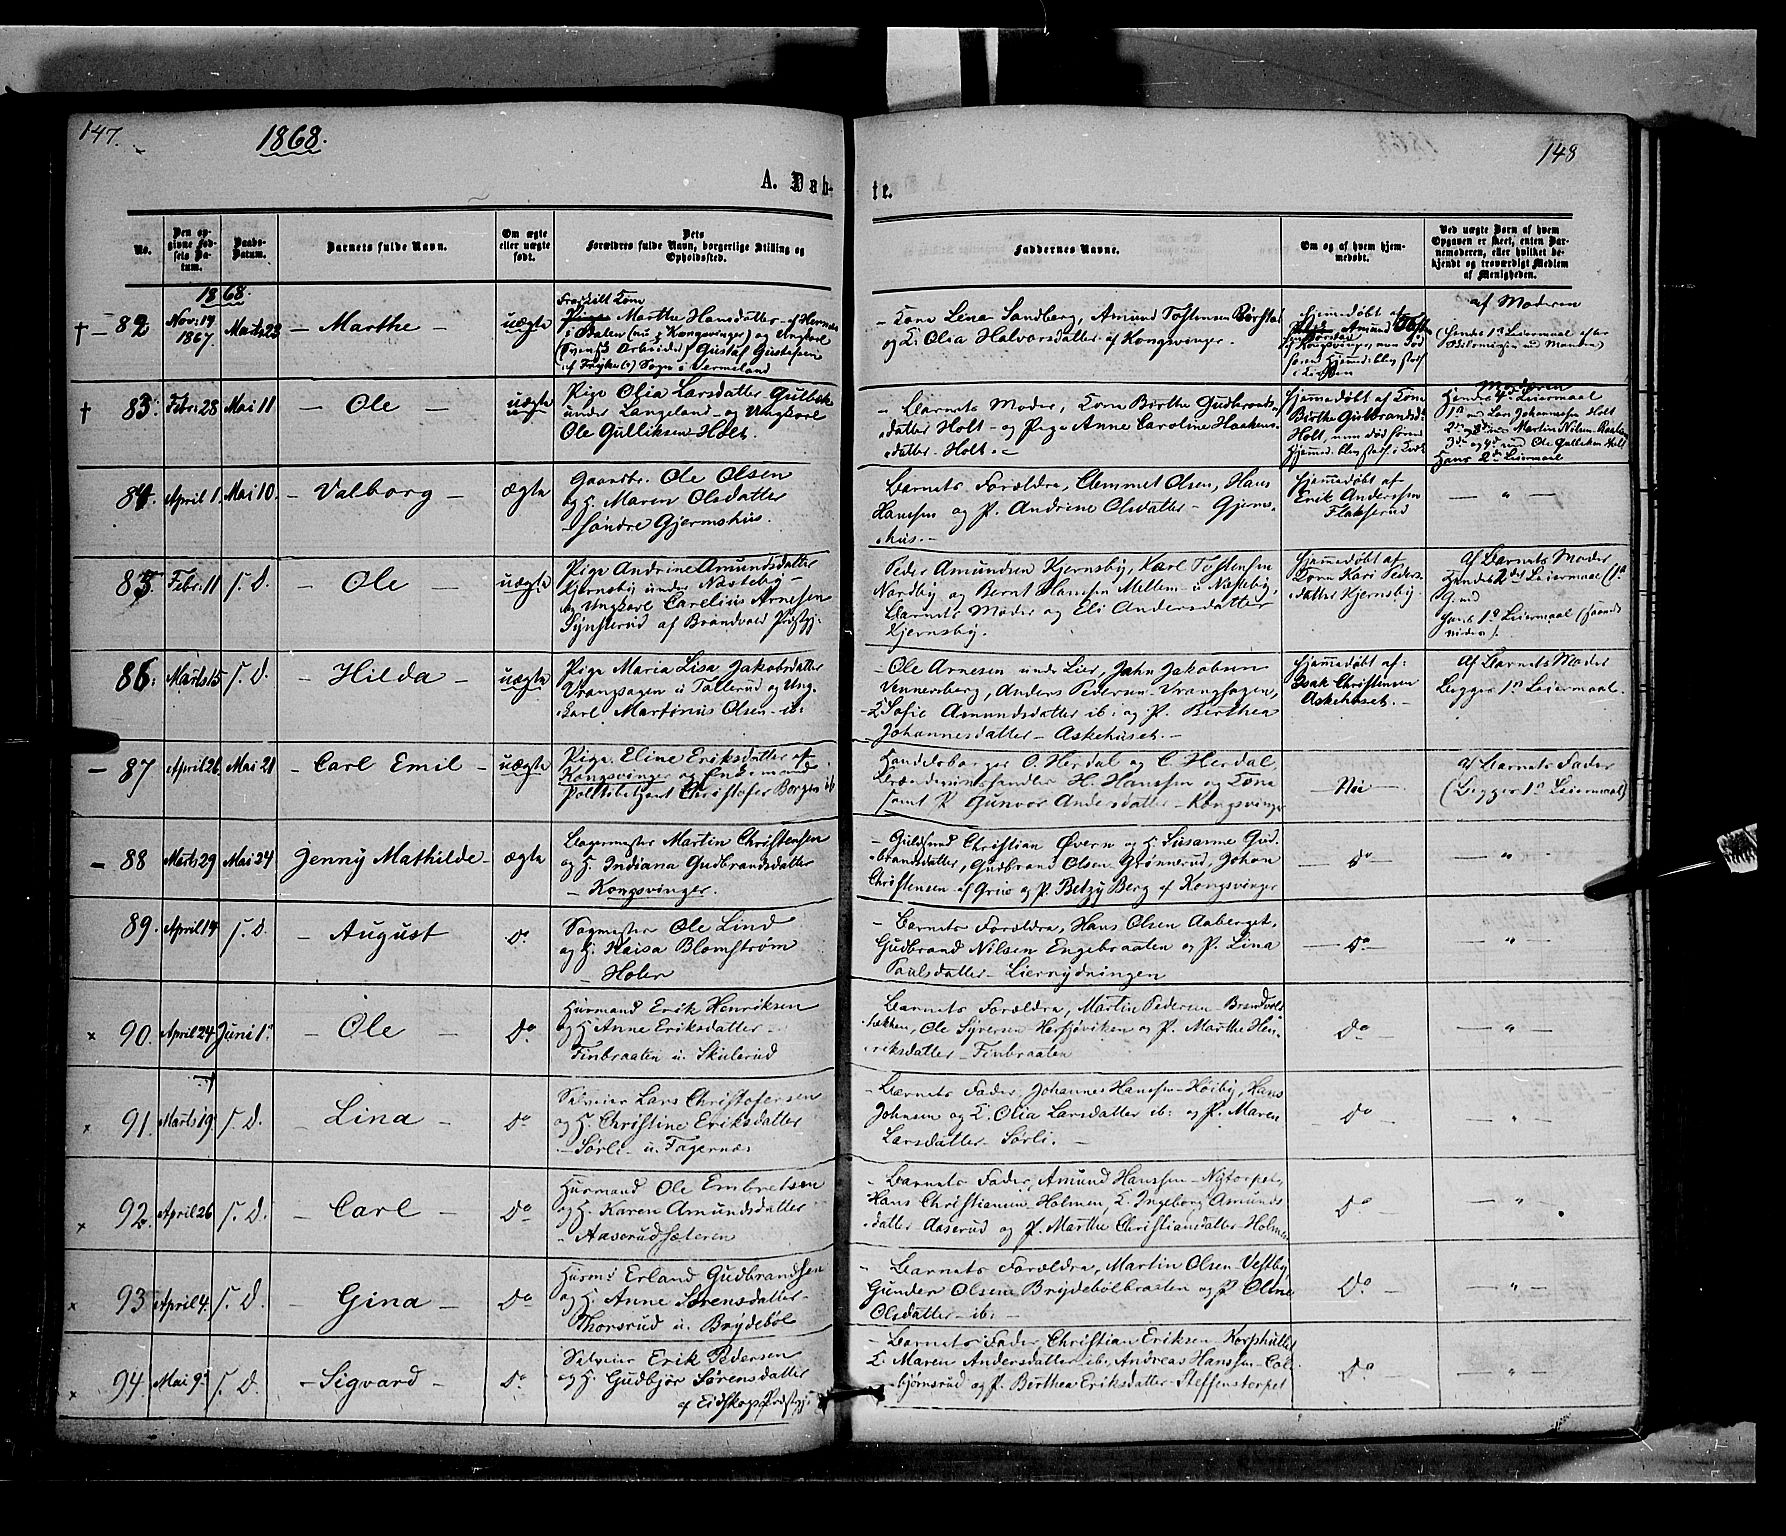 147.
1868.
148
A. Døb-
te.
No.
Den op-
givne Fød-
sels Da-
tum.
Daabs-
Datum.
Barnets fulde Navn.
Om ægte
eller uægte
født.
Dets
Forældres fulde Navn, borgerlige Stilling og
Opholdssted.
Faddernes Navne.
Om og af hvem hjem-
medøbt.
Ved uægte Børn af hvem
Opgaven er skeet, enten Bar-
nemoderen, eller hvilket be-
kjendt og troværdigt Medlem
af Menigheden.
1868.
† – 82 Nov. 19 1867 Marts 23 – Marthe – uægte
Fraskilt Kone
Marthe Hansdatter af
(nu i Kongsvinger) og Ungkarl
(Svensk Arbeider) Gustaf Gustafsen
af Sogn i Vermeland
– Kone Lena Sandberg, Amund Tostensen Børstad
og K: Olia Halvorsdatter af Kongsvinger.
Hjemmedøbt af
Amund
af Moderen
† 83 Febr: 28 Mai 11 – Ole – uægte
Pige Olia Larsdatter Gulbek
under Langeland – og Ungkarl
Ole Gulliksen Holt.
– Barnets Moder, Kone Birthe Gudbrands-
datter Holt – og Pige Anne Caroline Haakens-
datter Holt. –
Hjemmedøbt af Kone
Birthe Gudbrandsd:
Holt,
Moderen
Hendes 4de Leiermaal
Hans 2det Leiermaal
84 April 1. Mai 10. – Valborg – ægte
Gaardbr. Ole Olsen
og H. Maren Olsdatter
– Søndre Gjermshus.
Barnets Forældre, Clemmet Olsen, Hans
Hansen og P. Andrine Olsdatter – Gjerms-
hus. –
Hjemmedøbt af
Erik Andersen
Flakserud
— " —
85 Febr: 11 S. D. – Ole – uægte
Pige Andrine Amundsdatter
Kjernsby under Næsteby –
og Ungkarl Carelius Arnesen
af Brandvold Præstgj:
Peder Amundsen Kjernsby, Karl Tostensen
Nordby og Bernt Hansen Mellem u Næsteby,
Barnets Moder og Eli Andersdatter
Kjernsby.
Hjemmedøbt af
Kone Kari Peders-
datter Kjernsby.
Af Barnets Moder
Hendes 2det Leiermaal
86: Marts 15 S. D. – Hilda – uægte
Pige Maria Lisa Jakobsdatter
Vrangsagen u Tallerud og Ung-
karl Martinus Olsen – ib:
– Ole Arnesen under Lier, John Jakobsen
Vennersberg, Anders Pedersen Vrangsagen,
K Sofie Amundsdatter ib: og P. Birthea
Johannesdatter – Askehuset. –
Hjemmedøbt af:
Isak Christensen
Askehuset. –
Af Barnets Moder
Begges 1ste Leiermaal.
– 87 April 26. Mai 21 – Carl Emil – uægte
Pige Eline Eriksdatter af
Kongsvinger og Enkemand
Politibetjent Christofer Borgen ib
Handelsborger O. Herdal og C. Herdal,
Brændevinshandler H. Hansen og Kone
samt P. Gunvor Andersdatter – Kongsvinger
– Nei –
Af Barnets Fader
(Begges 1ste Leiermaal)
– 88 Marts 29 Mai 24 Jenny Mathilde – ægte
Bagermester Martin Christensen
og H. Indiana Gudbrandsdatter
– Kongsvinger.
– Guldsmed Christian Øvern og H Susanne Gud-
brandsdatter, Gudbrand Olsen Grønnerud, Johan
Christensen af Grue og P. Betzy Berg af Kongsvinger
— do —
— " —
89. April 14 S. D. – August – do
Sagmester Ole Lind
og H. Kaisa Blomstrøm
– Holen
– Barnets Forældre, Hans Olsen Aaberget,
Gudbrand Nilsen Engebraaten og P. Lina
Paulsdatter – Liernydningen
— do —
— " —
x 90. April 24 Juni 1ste – Ole – Do
Husmand Erik Henriksen
og H Anne Eriksdatter –
Finbraaten u. Skulerud
– Barnets Forældre, Martin Pedersen Brandvol-
Ole Syversen og P. Marthe Hen-
riksdatter – Finbraaten
Do
— " —
x 91. Marts 19 S. D. – Lina – Do
Selveier Lars Christofersen
og H. Christine Eriksdatter
– Sørli – u. Fagernæs
– Barnets Fader, Johannes Hansen – Høiby, Hans
Johnsen og K. Olia Larsdatter ib: og P. Maren
Larsdatter Sørli. –
Do
— " —
x 92. April 26 S. D. – Carl – Do
Husmand Ole Embretsen
og H. Karen Amundsdatter
– Aaserudsæteren
– Barnets Fader, Amund Hansen – Nytorpet,
Hans Christiansen Holmen, K. Ingeborg Amunds-
datter Aaserud og P. Marthe Christiansdatter Holmen
Do –
— " —
x 93 April 4. S. D. – Gina – Do
Husmd Erland Gudbrandsen
og H. Anne Sørensdatter –
Thorsrud u. Brydebøl
– Barnets Forældre, Martin Olsen Vestby
Gunder Olsen Brydebølbraaten og P Oline
Olsdatter – ib: –
Do –
— " —
x 94 Mai 9de S. D. – Sigvard – Do
Selveier Erik Pedersen
og H. Gudbjør Sørensdatter
af Eidskogs Præstgj:
– Barnets Fader, Christian Eriksen Korphullet
K. Maren Andersdatter ib, Andreas Hansen – Col-
bjørnsrud og P. Berthea Eriksdatter – Steffenstorpet
Do –
— " —